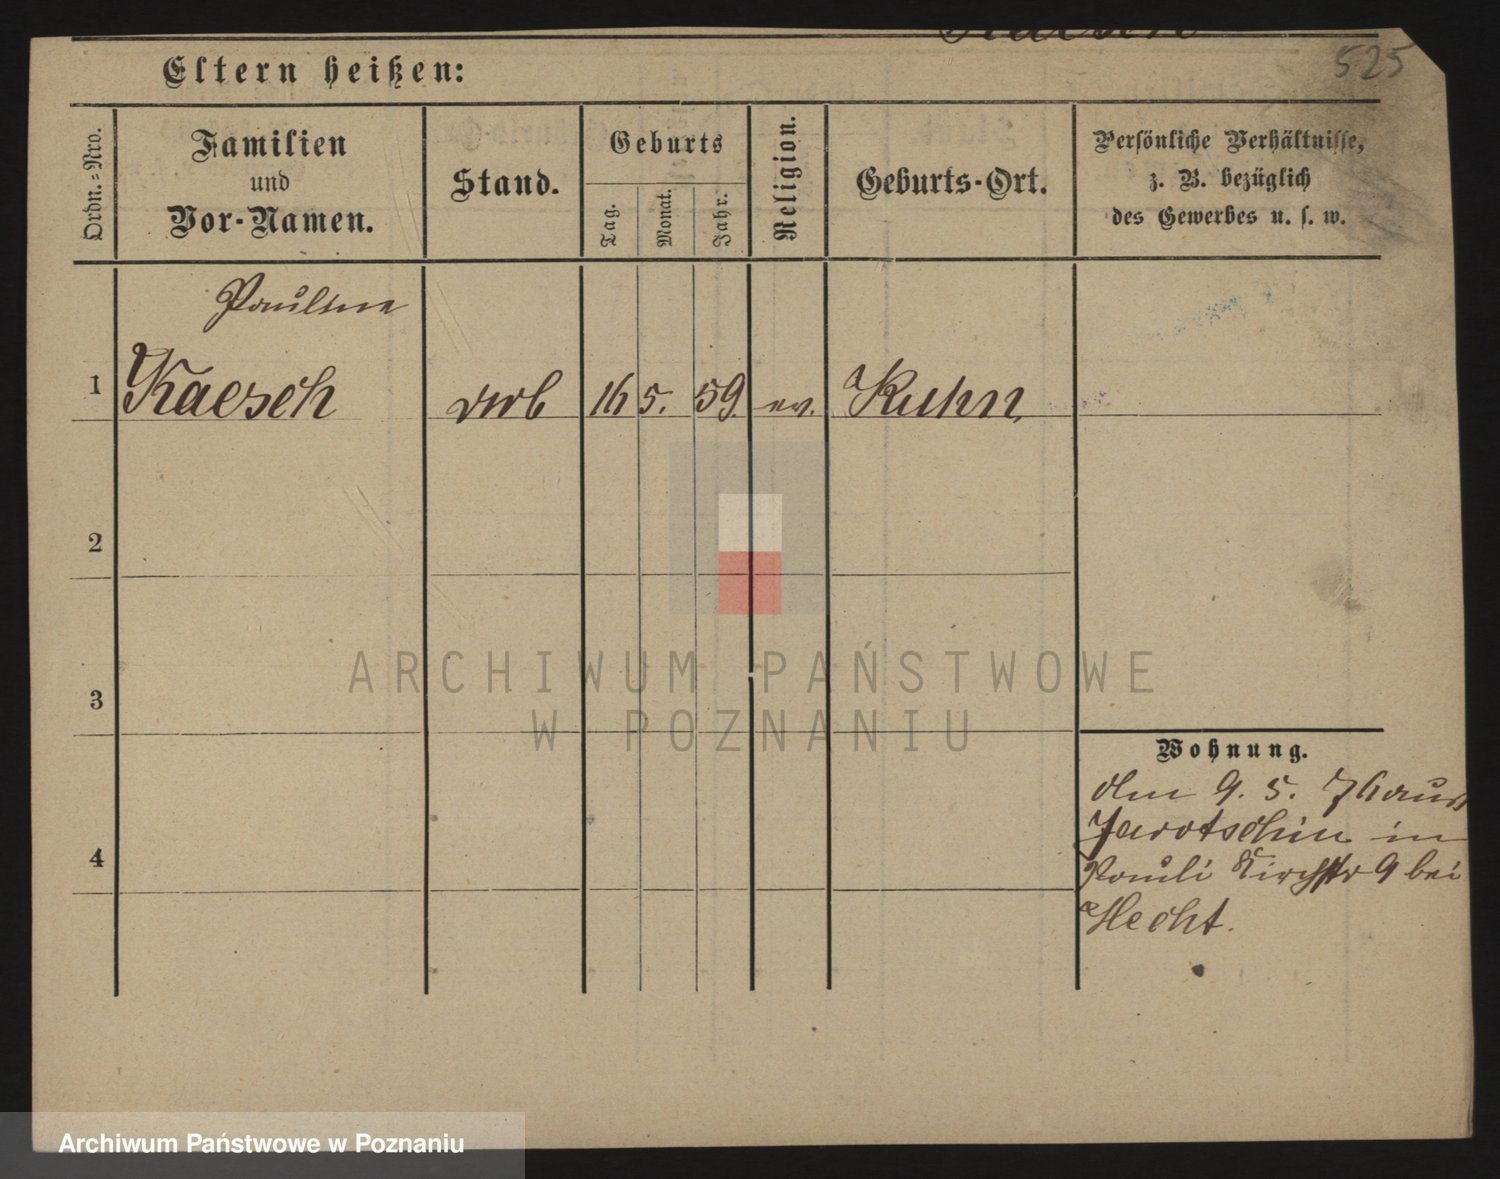 525
Eltern heißen:
Ordn.-Nro.
Familien
und
Vor-Namen.
Stand.
Geburts
Tag.
Monat.
Jahr.
Religion.
Geburts-Ort.
Persönliche Verhältnisse,
z. B. bezüglich
des Gewerbes u. s. w.
Pauline
1 Kaesch 16 5. 59. ev. Kuhn
2
3
4
Wohnung.
9. 5. 76 aus
Jarotschin in
Pauli Kirchstr 9 bei
Hecht.
ARCHIWUM PAŃSTWOWE
W POZNANIU
Archiwum Państwowe w Poznaniu